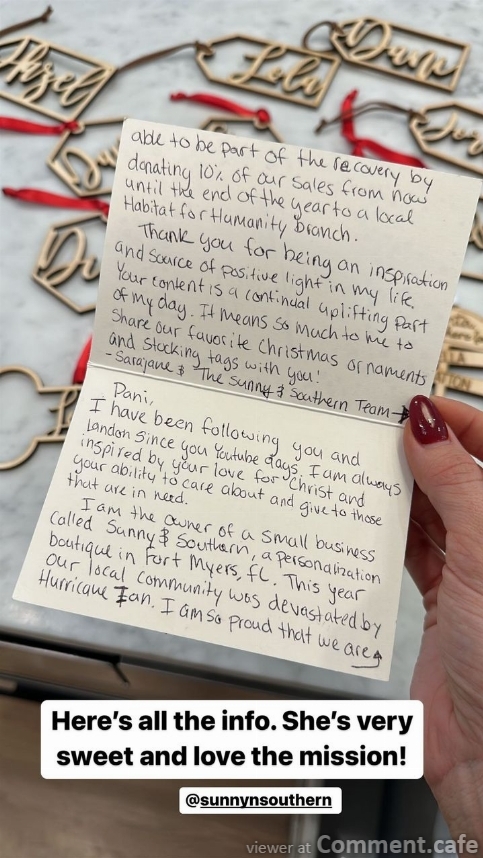 Hazel
Lola
Dani
able to be part of the recovery by
donating 10% of our sales from now
until the end of the year to a local
Habitat for Humanity branch.
Thank you for being an inspiration
and source of positive light in my life.
Your content is a continual uplifting part
of my day. It means so much to me to
share our favorite Christmas ornaments
and stocking tags with you!
- Sarajane & The Sunny & Southern Team
Dani,
I have been following you and
Landon since you Youtube days. I am always
inspired by your love for Christ and
your ability to care about and give to those
that are in need.
I am the owner of a small business
called Sunny & Southern, a personalization
boutique in Fort Myers, FL. This year
our local community was devastated by
Hurricane Ian. I am so proud that we are
Here's all the info. She's very
sweet and love the mission!
@sunnynsouthern
viewer at Comment.cafe